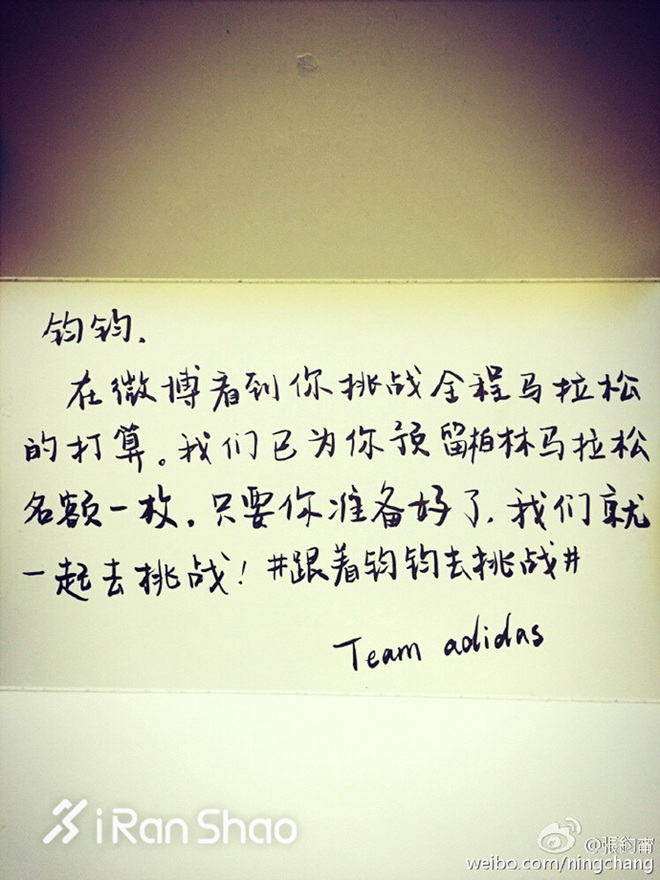 钧钧.
在微博看到你挑战全程马拉松
的打算。我们已为你预留柏林马拉松
名额一枚。只要你准备好了.我们就
一起去挑战！#跟着钧钧去挑战#
Team adidas
iRanShao
@張鈞甯
weibo.com/ningchang